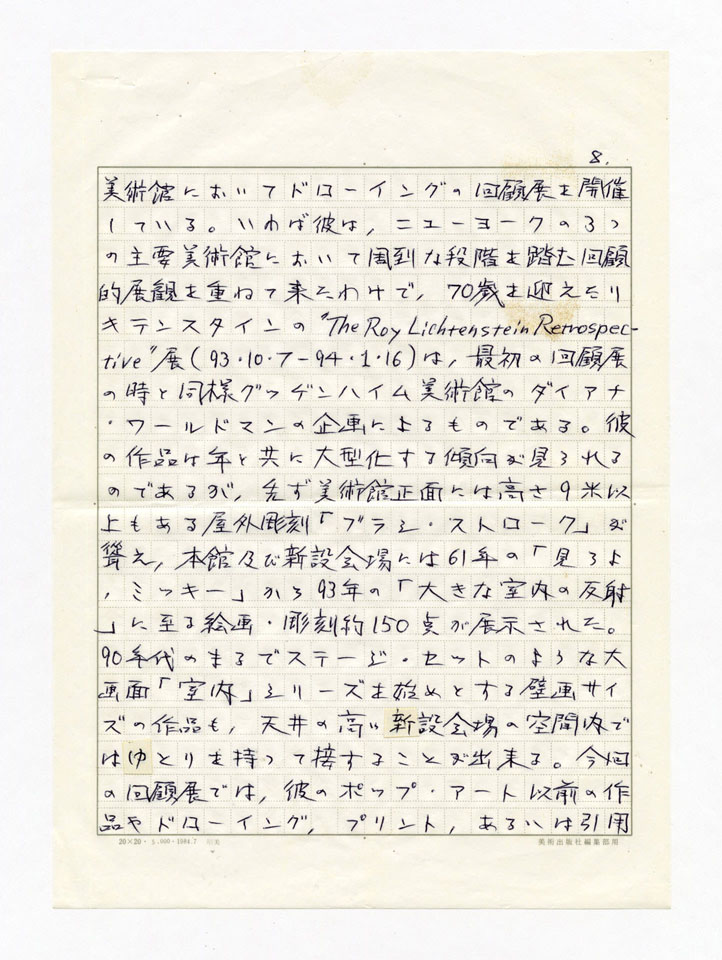 8.
美術館においてドローイングの回顧展を開催
している。いわば彼は，ニューヨークの3つ
の主要美術館において周到な段階を踏む回顧
的展観を重ねて来たわけで，70歳を迎えたリ
キテンスタインの"The Roy Lichtenstein Retrospec-
tive"展(93・10・7－94・1・16)は，最初の回顧展
の時と同様グッゲンハイム美術館のダイアナ
・ワールドマンの企画によるものである。彼
の作品は年と共に大型化する傾向が見られる
のであるが，先ず美術館正面には高さ9米以
上もある屋外彫刻「ブラシ・ストローク」が
聳え，本館及び新設会場には61年の「見ろよ
，ミッキー」から93年の「大きな室内の反射
」に至る絵画・彫刻約150点が展示された。
90年代のまるでステージ・セットのような大
画面「室内」シリーズを始めとする壁画サイ
ズの作品も，天井の高い新設会場の空間内で
はゆとりを持って接することが出来る。今回
の回顧展では，彼のポップ・アート以前の作
品やドローイング，プリント，あるいは引用
20×20・5,000・1984.7
美術出版社編集部用